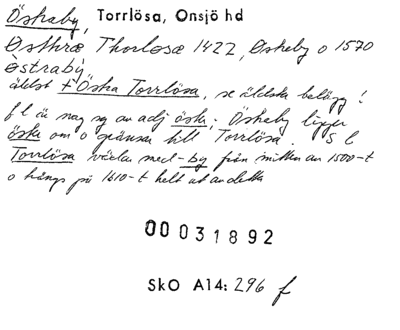 Östraby, Torrlösa, Onsjö hd
Østhræ Thorløsæ 1422, Østeby o 1570
Östraby
äldst † Östra Torrlösa, se äldsta belägg!
f l är nog sg av adj östra. Östraby ligger
öster om o gränsar till Torrlösa. S l
Torrlösa växlar med -by från mitten av 1500-t
o trängs på 1610-t helt ut av detta
00031892
SkO A14: 296 f